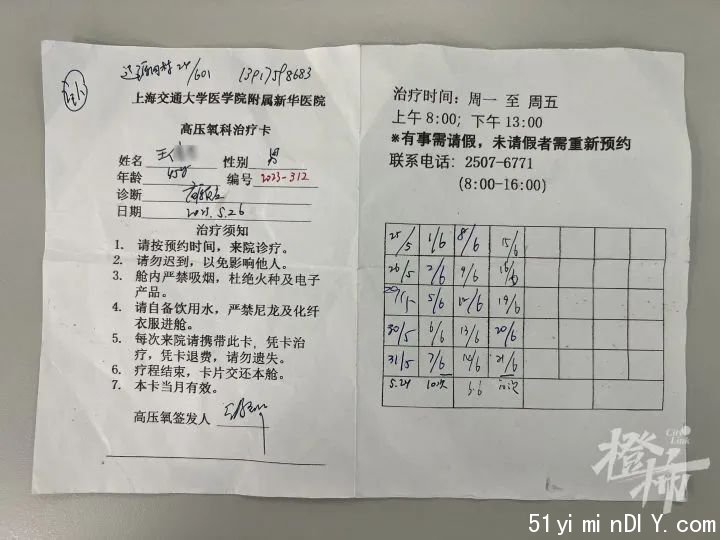 24/601 13917598683
上海交通大学医学院附属新华医院
高压氧科治疗卡
姓名 王 性别 男
年龄 45岁 编号 2023-312
诊断
日期 2023.5.26
治疗须知
1. 请按预约时间，来院诊疗。
2. 请勿迟到，以免影响他人。
3. 舱内严禁吸烟，杜绝火种及电子
产品。
4. 请自备饮用水，严禁尼龙及化纤
衣服进舱。
5. 每次来院请携带此卡，凭卡治
疗，凭卡退费，请勿遗失。
6. 疗程结束，卡片交还本舱。
7. 本卡当月有效。
高压氧签发人
治疗时间：周一 至 周五
上午 8:00; 下午 13:00
*有事需请假，未请假者需重新预约
联系电话：2507-6771
(8:00-16:00)
25/5 1/6 8/6 15/6
26/5 2/6 9/6 16/6
29/5 5/6 12/6 19/6
30/5 6/6 13/6 20/6
31/5 7/6 14/6 21/6
5.24 10次 6.6 10次
橙柿
City Link
51yiminDIY.com